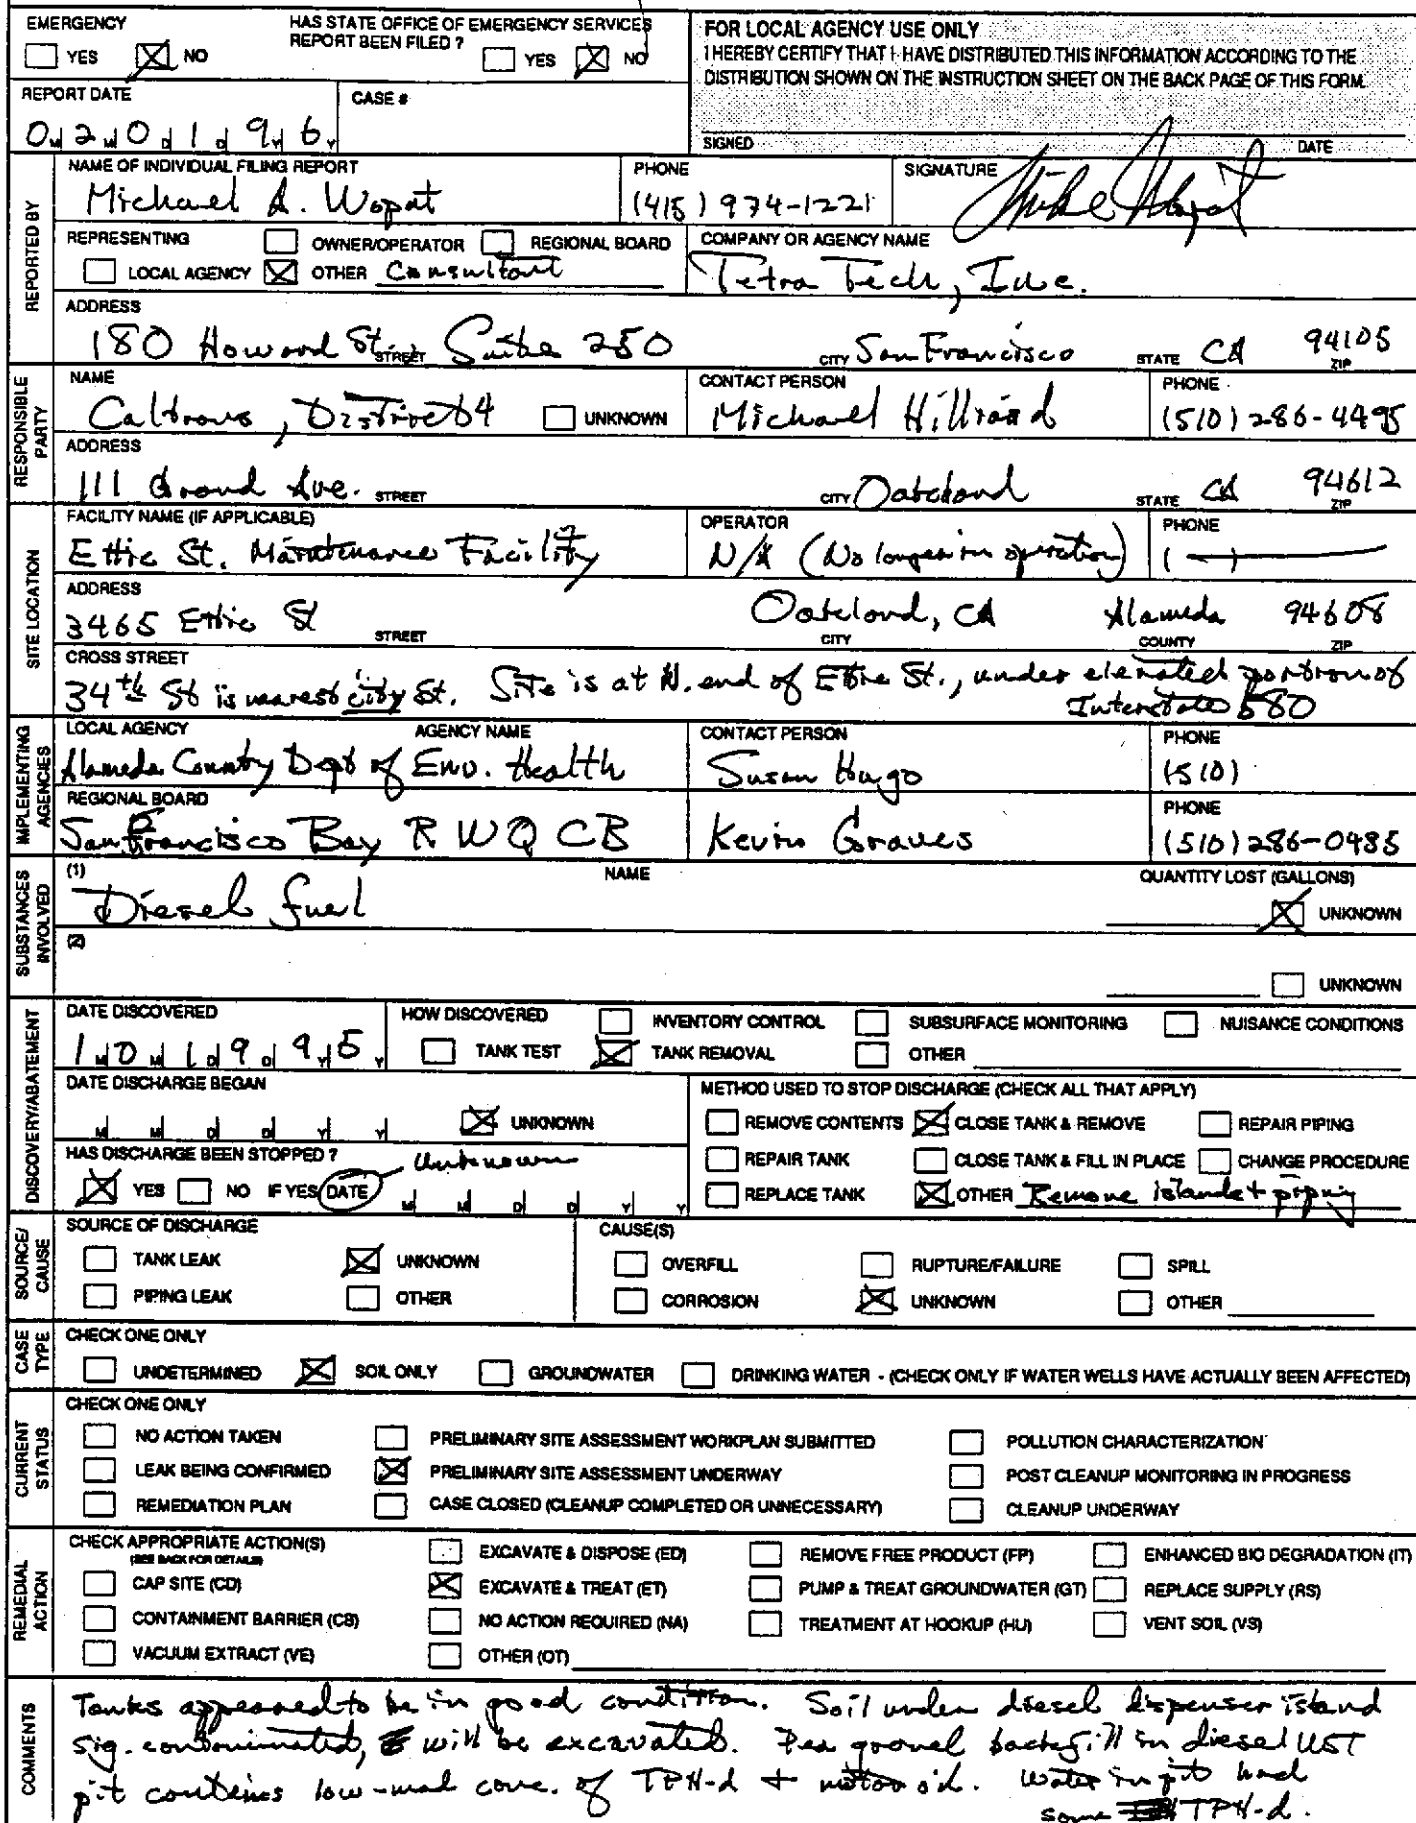 EMERGENCY
YES NO
HAS STATE OFFICE OF EMERGENCY SERVICES
REPORT BEEN FILED ?
YES NO
FOR LOCAL AGENCY USE ONLY
I HEREBY CERTIFY THAT I HAVE DISTRIBUTED THIS INFORMATION ACCORDING TO THE
DISTRIBUTION SHOWN ON THE INSTRUCTION SHEET ON THE BACK PAGE OF THIS FORM.
REPORT DATE
0 M 2 M 0 D 1 D 9 Y 6 Y
CASE #
SIGNED DATE
REPORTED BY
NAME OF INDIVIDUAL FILING REPORT
Michael A. Wopat
PHONE
(415) 974-1221
SIGNATURE
Mike Wopat
REPRESENTING OWNER/OPERATOR REGIONAL BOARD
LOCAL AGENCY OTHER Consultant
COMPANY OR AGENCY NAME
Tetra Tech, Inc.
ADDRESS
180 Howard St. STREET Suite 250 CITY San Francisco STATE CA 94105 ZIP
RESPONSIBLE PARTY
NAME
Caltrans, District 4 UNKNOWN
CONTACT PERSON
Michael Hilliard
PHONE
(510) 286-4495
ADDRESS
111 Grand Ave. STREET CITY Oakland STATE CA 94612 ZIP
SITE LOCATION
FACILITY NAME (IF APPLICABLE)
Ettie St. Maintenance Facility
OPERATOR
N/A (No longer in operation)
PHONE
( )
ADDRESS
3465 Ettie St STREET Oakland, CA CITY Alameda COUNTY 94608 ZIP
CROSS STREET
34th St is nearest city St. Site is at N. end of Ettie St., under elevated portion of
Interstate 580
IMPLEMENTING AGENCIES
LOCAL AGENCY AGENCY NAME
Alameda County Dept of Env. Health
CONTACT PERSON
Susan Hugo
PHONE
(510)
REGIONAL BOARD
San Francisco Bay RWQCB
Kevin Graves
PHONE
(510) 286-0435
SUBSTANCES INVOLVED
(1) NAME QUANTITY LOST (GALLONS)
Diesel fuel UNKNOWN
(2)
UNKNOWN
DISCOVERY/ABATEMENT
DATE DISCOVERED
1 M 0 M 1 D 9 D 9 Y 5 Y
HOW DISCOVERED INVENTORY CONTROL SUBSURFACE MONITORING NUISANCE CONDITIONS
TANK TEST TANK REMOVAL OTHER
DATE DISCHARGE BEGAN
M M D D Y Y UNKNOWN
HAS DISCHARGE BEEN STOPPED ? Unknown
YES NO IF YES, DATE M M D D Y Y
METHOD USED TO STOP DISCHARGE (CHECK ALL THAT APPLY)
REMOVE CONTENTS CLOSE TANK & REMOVE REPAIR PIPING
REPAIR TANK CLOSE TANK & FILL IN PLACE CHANGE PROCEDURE
REPLACE TANK OTHER Remove islands + piping
SOURCE/ CAUSE
SOURCE OF DISCHARGE
TANK LEAK UNKNOWN
PIPING LEAK OTHER
CAUSE(S)
OVERFILL RUPTURE/FAILURE SPILL
CORROSION UNKNOWN OTHER
CASE TYPE
CHECK ONE ONLY
UNDETERMINED SOIL ONLY GROUNDWATER DRINKING WATER - (CHECK ONLY IF WATER WELLS HAVE ACTUALLY BEEN AFFECTED)
CURRENT STATUS
CHECK ONE ONLY
NO ACTION TAKEN PRELIMINARY SITE ASSESSMENT WORKPLAN SUBMITTED POLLUTION CHARACTERIZATION
LEAK BEING CONFIRMED PRELIMINARY SITE ASSESSMENT UNDERWAY POST CLEANUP MONITORING IN PROGRESS
REMEDIATION PLAN CASE CLOSED (CLEANUP COMPLETED OR UNNECESSARY) CLEANUP UNDERWAY
REMEDIAL ACTION
CHECK APPROPRIATE ACTION(S)
(SEE BACK FOR DETAILS)
EXCAVATE & DISPOSE (ED) REMOVE FREE PRODUCT (FP) ENHANCED BIO DEGRADATION (IT)
CAP SITE (CD) EXCAVATE & TREAT (ET) PUMP & TREAT GROUNDWATER (GT) REPLACE SUPPLY (RS)
CONTAINMENT BARRIER (CB) NO ACTION REQUIRED (NA) TREATMENT AT HOOKUP (HU) VENT SOIL (VS)
VACUUM EXTRACT (VE) OTHER (OT)
COMMENTS
Tanks appeared to be in good condition. Soil under diesel dispenser island
sig. contaminated, will be excavated. Pea gravel backfill in diesel UST
pit contains low-mod conc. of TPH-d + motor oil. Water in pit had
some TPH-d.